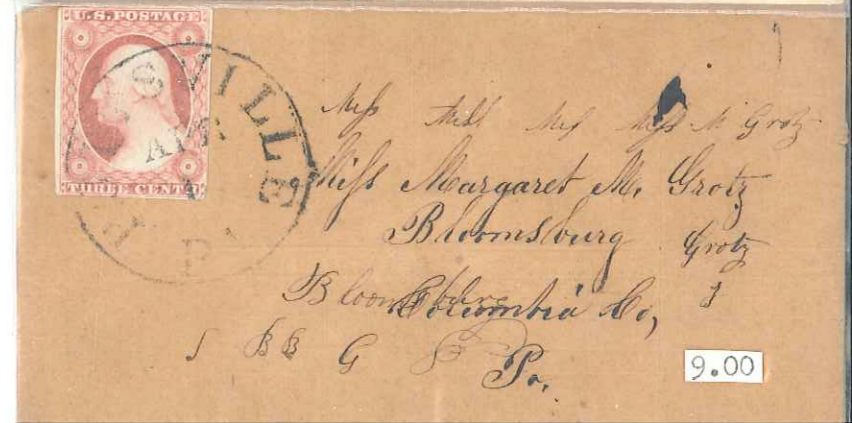 U.S. POSTAGE
THREE CENTS
Miss Miss M Grotz
Miss Margaret M. Grotz
Bloomsburg Grotz
Bloomsburg Columbia Co,
J B B G
Pa.
9.00